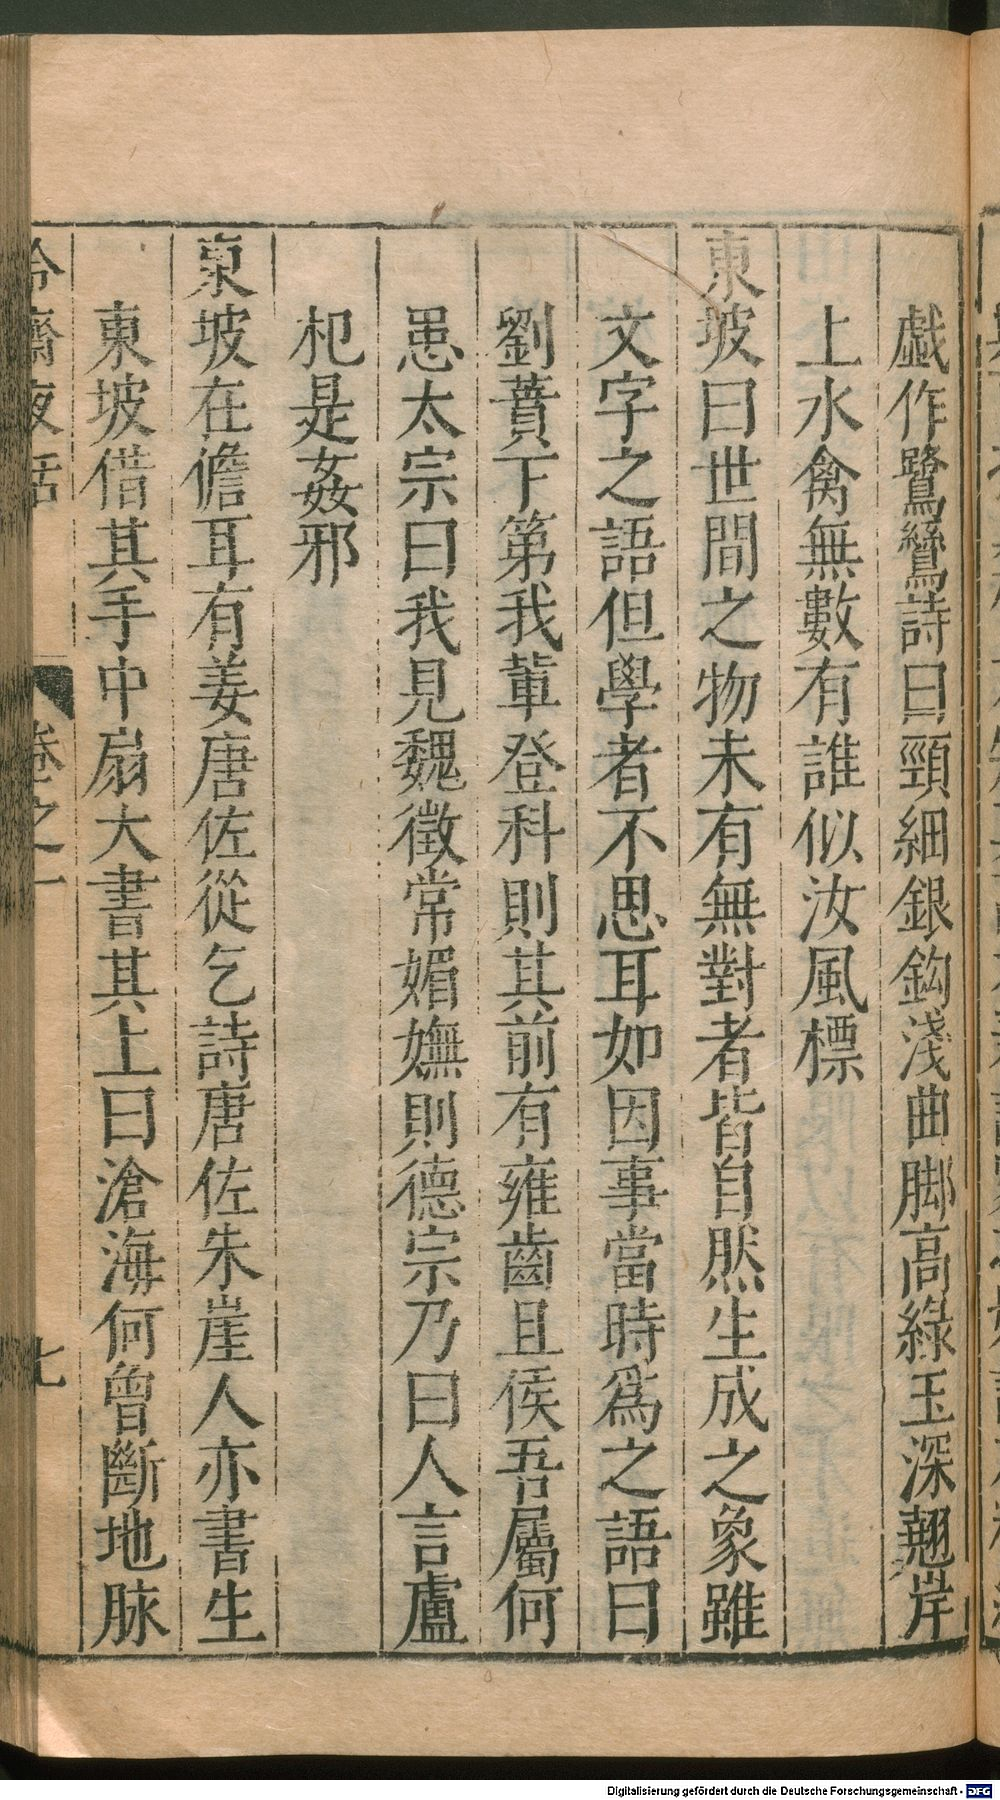 戱作鷺鷥詩曰頸細銀鈎淺曲脚高綠玉深翹岸
上水禽無數有誰似汝風標
東坡曰世間之物未有無對者皆自然生成之象雖
文字之語但學者不思耳如因事當時爲之語曰
劉蕡下第我軰登科則其前有雍齒且侯吾屬何
患太宗曰我見魏徵常媚嫵則德宗乃曰人言盧
杞是姦邪
東坡在儋耳有姜唐佐從乞詩唐佐朱崖人亦書生
東坡借其手中扇大書其上曰滄海何曾斷地脉
冷齋夜話
卷之一
七
Digitalisierung gefördert durch die Deutsche Forschungsgemeinschaft - DFG